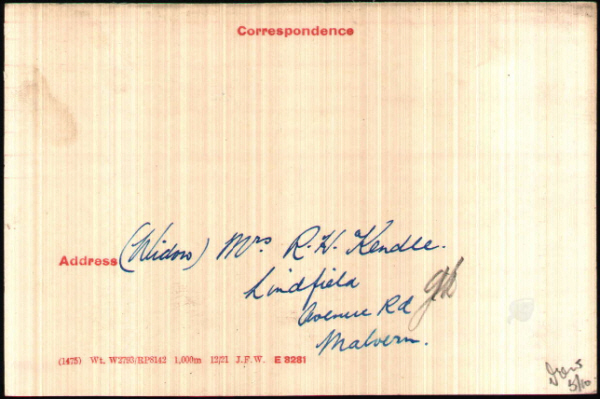 Correspondence
Address (Widow) Mrs R. H. Kendle.
Lindfield
Avenue Rd
Malvern.
(1475) Wt. W2793/RP8142 1,000m 12/21 J.F.W. E 8281
5/10